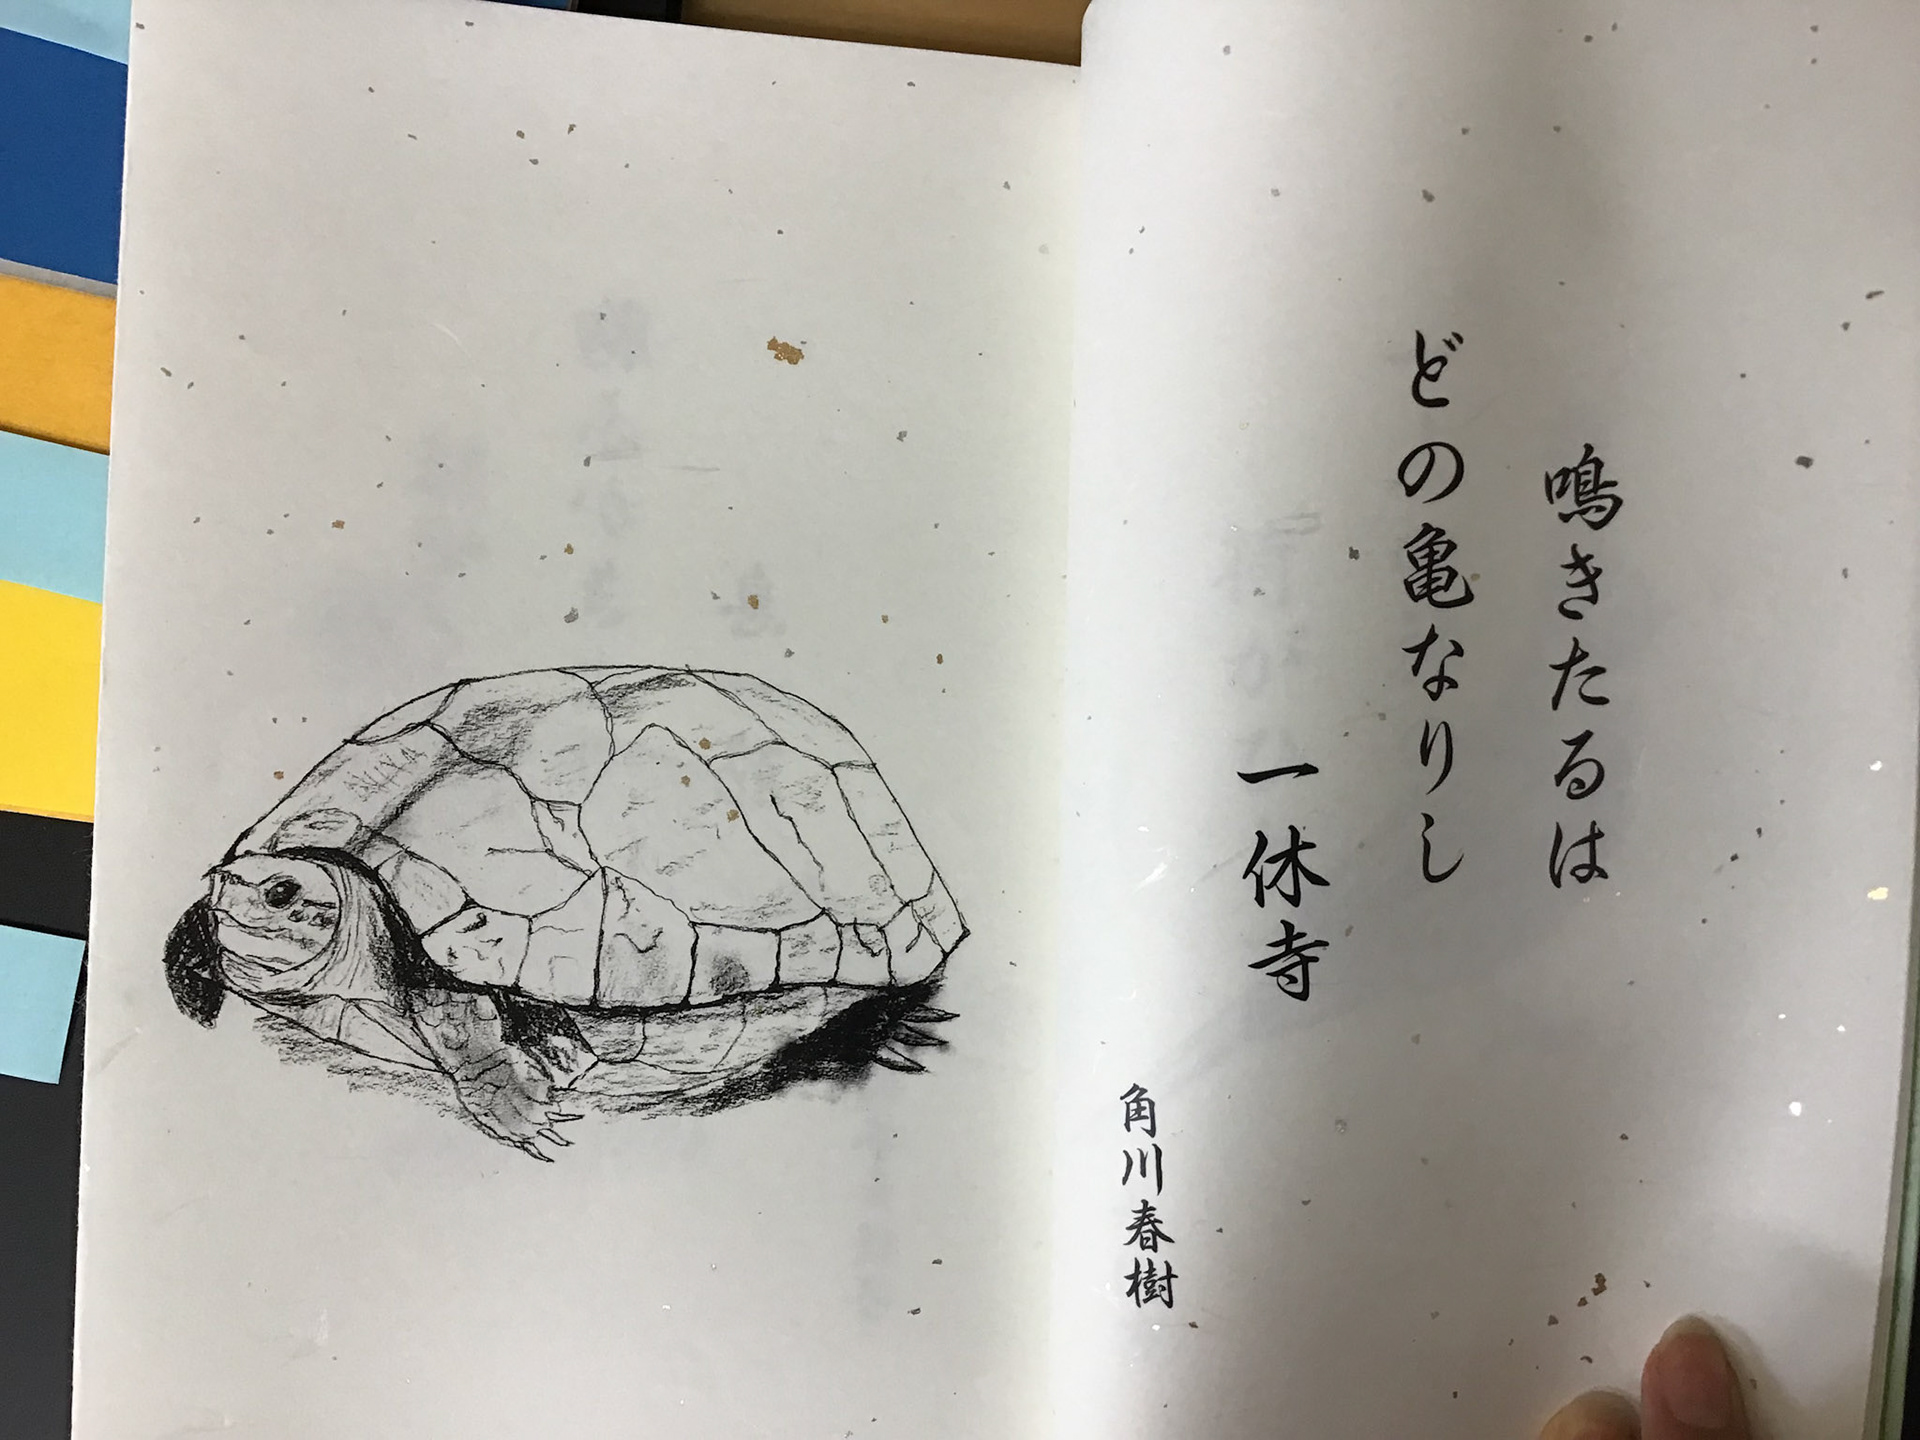 鳴きたるは
どの亀なりし
一休寺
角川春樹